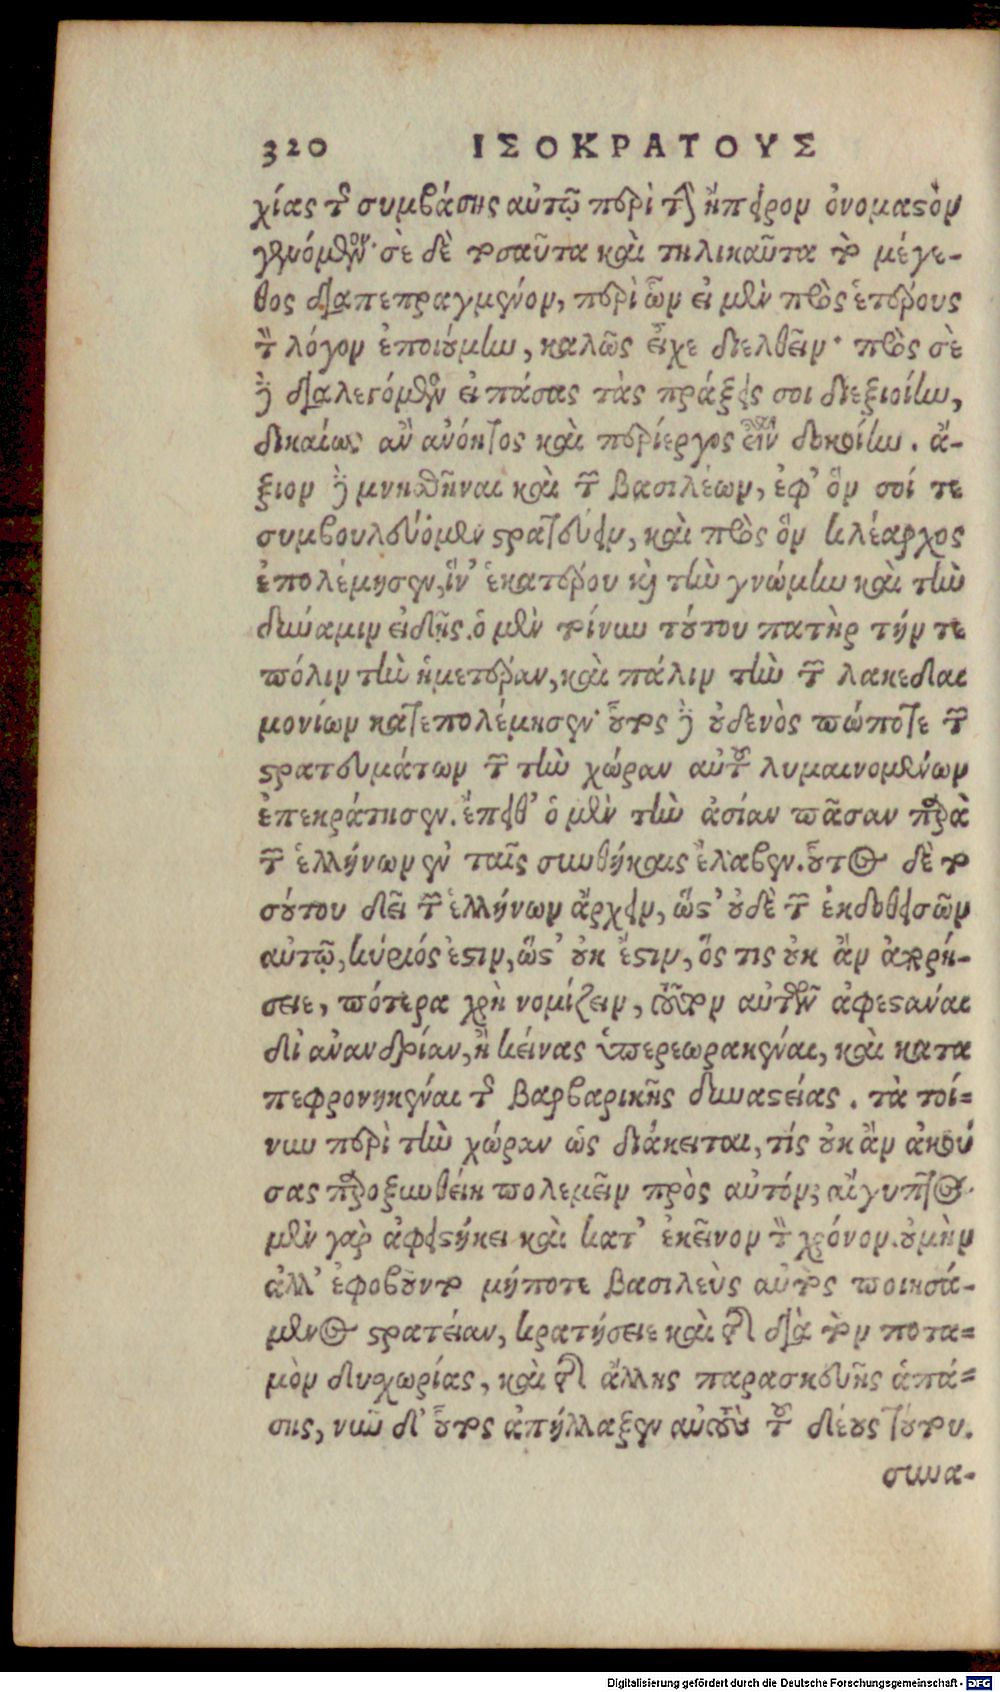 320 ΙΣΟΚΡΑΤΟΥΣ
χίας τῆς συμβάσης αὐτῷ περὶ τὴν ἤπειρον ὀνομαστὸν
γενόμενον· σὲ δὲ τοσαῦτα καὶ τηλικαῦτα τὸ μέγε-
θος διαπεπραγμένον, περὶ ὧν εἰ μὲν πρὸς ἑτέρους
τὸν λόγον ἐποιούμην, καλῶς εἶχε διελθεῖν· πρὸς σὲ
δὲ διαλεγόμενος εἰ πάσας τὰς πράξεις σοι διεξιοίην,
δικαίως ἂν ἀνόητος καὶ περίεργος εἶναι δοκοίην. ἄ-
ξιον δὲ μνησθῆναι καὶ τῶν βασιλέων, ἐφ' ὅν σοί τε
συμβουλεύομεν στρατεύειν, καὶ πρὸς ὃν κλέαρχος
ἐπολέμησεν, ἵν' ἑκατέρου καὶ τὴν γνώμην καὶ τὴν
δύναμιν εἰδῇς. ὁ μὲν τοίνυν τούτου πατὴρ τήν τε
πόλιν τὴν ἡμετέραν, καὶ πάλιν τὴν τῶν λακεδαι
μονίων κατεπολέμησεν· οὗτος δὲ οὐδενὸς πώποτε τῶν
στρατευμάτων τῶν τὴν χώραν αὐτοῦ λυμαινομένων
ἐπεκράτησεν. ἔπειθ' ὁ μὲν τὴν ἀσίαν πᾶσαν παρὰ
τῶν ἑλλήνων ἐν ταῖς συνθήκαις ἔλαβεν. οὗτος δὲ το
σούτου δεῖ τῶν ἑλλήνων ἄρχειν, ὥστ' οὐδὲ τῶν ἐκδοθεισῶν
αὐτῷ, κύριός ἐστιν, ὥστ' οὐκ ἔστιν, ὅς τις οὐκ ἂν ἀπορή-
σειε, πότερα χρὴ νομίζειν, τοῦτον αὐτῶν ἀφεστάναι
δι' ἀνανδρίαν, ἢ κείνας ὑπερεωρακέναι, καὶ κατα
πεφρονηκέναι τῆς βαρβαρικῆς δυναστείας. τὰ τοί-
νυν περὶ τὴν χώραν ὡς διάκειται, τίς οὐκ ἂν ἀκού
σας παροξυνθείη πολεμεῖν πρὸς αὐτόν; αἴγυπτος
μὲν γὰρ ἀφειστήκει καὶ κατ' ἐκεῖνον τὸν χρόνον. οὐ μὴν
ἀλλ' ἐφοβοῦντο μήποτε βασιλεὺς αὐτὸς ποιησά-
μενος στρατείαν, κρατήσειε καὶ τῆς διὰ τὸν ποτα-
μὸν δυσχωρίας, καὶ τῆς ἄλλης παρασκευῆς ἁπά-
σης, νῦν δ' οὗτος ἀπήλλαξεν αὐτοὺς τοῦ δέους τούτου.
συνα-
Digitalisierung gefördert durch die Deutsche Forschungsgemeinschaft - DFG